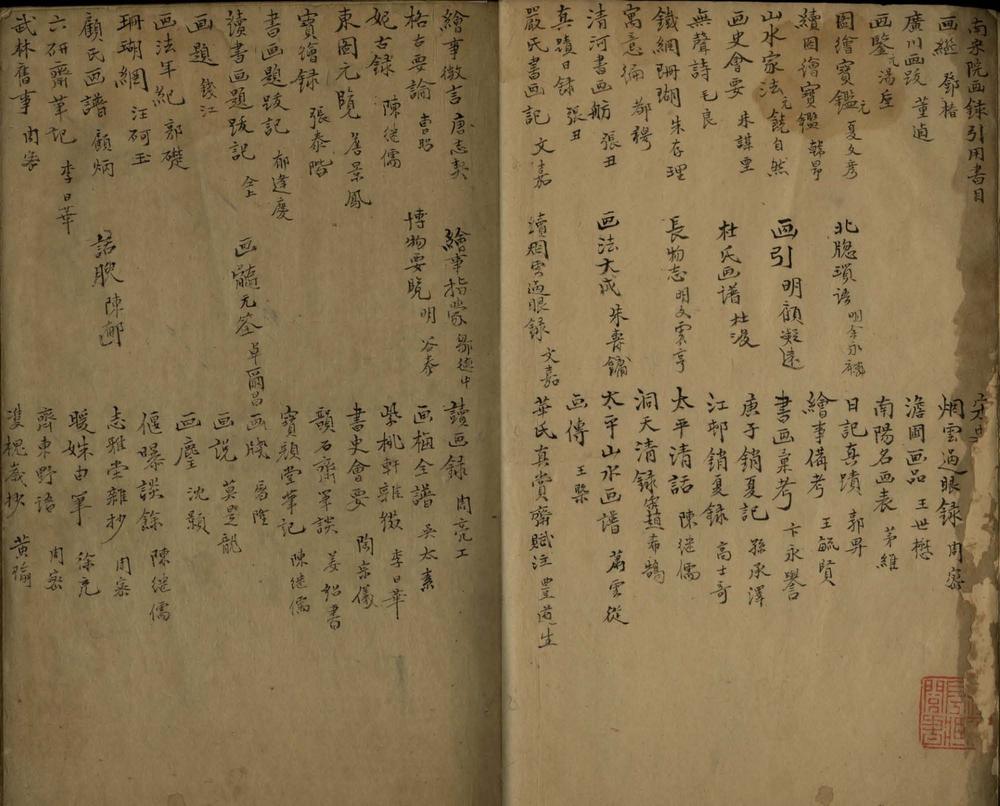 南宋院画錄引用書目
画繼 鄧椿
廣川画跋 董逌
画鑒 元湯垕
圖繪寶鑑 元夏文彥
續圖繪寶鑑 韓昻
山水家法 元饒自然
画史會要 朱謀垔
無聲詩 毛良
鐵網珊瑚 朱存理
寓意編 都穆
清河書画舫 張丑
真蹟日錄 張丑
嚴氏書画記 文嘉
北牕瑣語 明余永麟
画引 明顧凝遠
杜氏画譜 杜浚
長物志 明文震亨
画法大成 朱壽鏞
續烟雲過眼録 文嘉
烟雲過眼録 周密
澹圃画品 王世懋
南陽名画表 茅維
日記真蹟 郭畀
繪事備考 王毓賢
書画彙考 卞永譽
庚子銷夏記 孫承澤
江邨銷夏録 高士奇
太平清話 陳继儒
洞天清録 趙希鵠
太平山水画譜 蕭雲從
画傳 王槩
華氏真賞齋賦注 豊道生
繪事微言 唐志契
格古要論 曹昭
妮古録 陳继儒
東圖元覽 詹景鳳
寶繪録 張泰階
書画題跋記 郁逢慶
續書画題跋記 仝上
画題 錢江
画法年紀 郭礎
珊瑚網 汪砢玉
顧氏画譜 顧炳
六研齋筆記 李日華
武林舊事 周密
繪事指蒙 鄒德中
博物要覽 明 谷泰
画髓元筌 卓爾昌
話腴 陳郁
讀画録 周亮工
画栖全譜 吳太素
紫桃軒雜綴 李日華
書史會要 陶宗儀
韻石齋筆談 姜紹書
寶顏堂筆記 陳继儒
画説 莫是龍
画麈 沈顥
偃曝談餘 陳继儒
志雅堂雜抄 周密
暖姝由筆 徐充
齊東野語 周密
雙槐歲抄 黃瑜